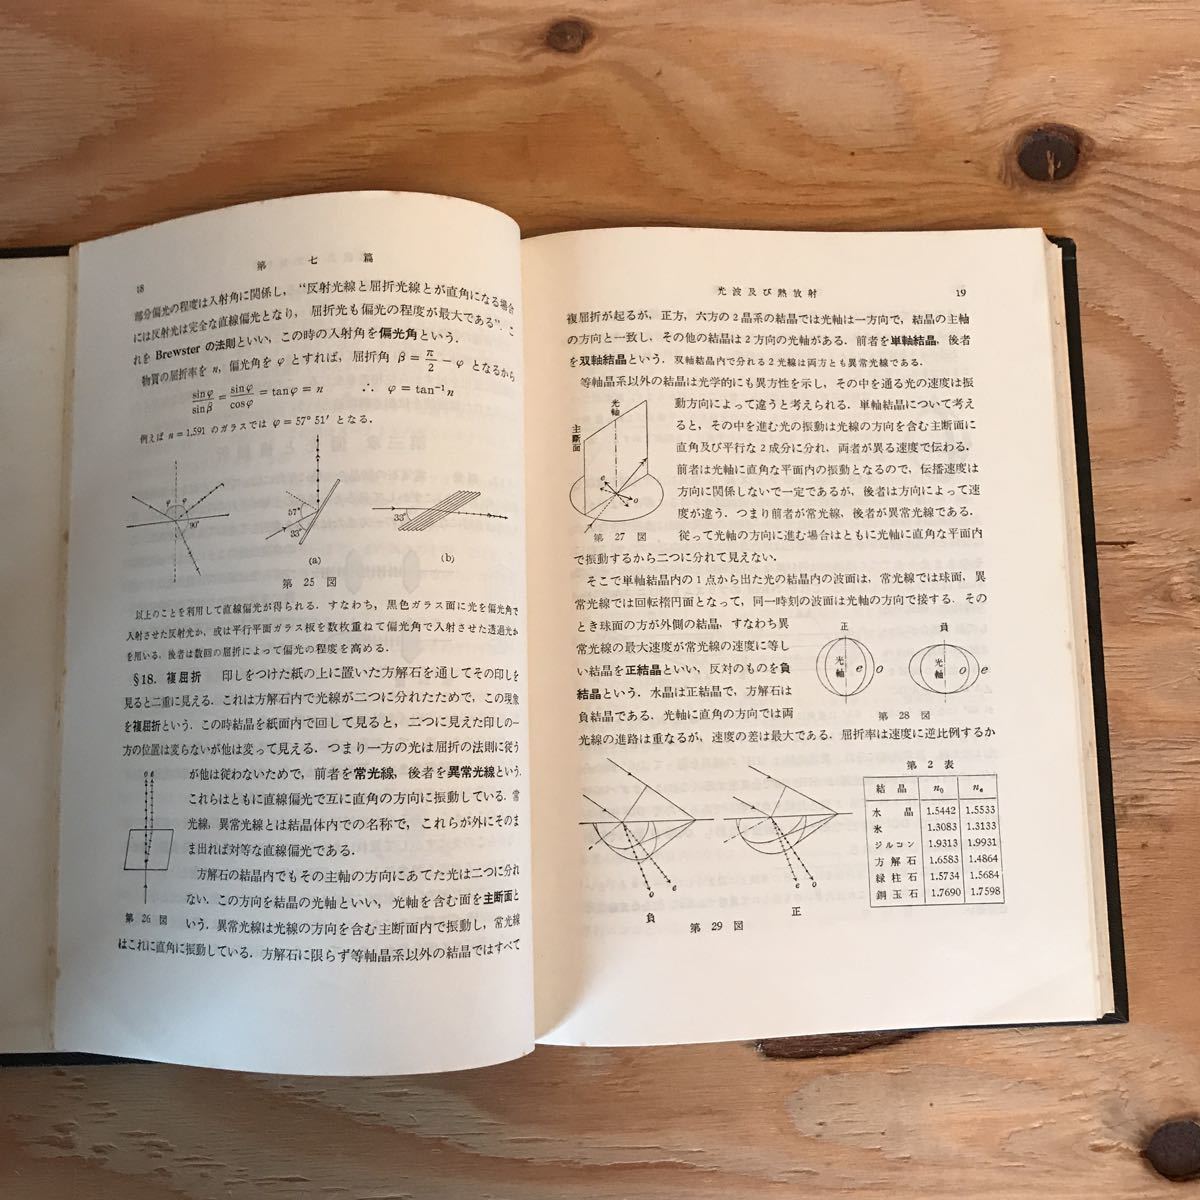 18
第 七 篇
部分偏光の程度は入射角に関係し，“反射光線と屈折光線とが直角になる場合
には反射光は完全な直線偏光となり，屈折光も偏光の程度が最大である”．こ
れを Brewster の法則といい，この時の入射角を偏光角という．
物質の屈折率を n，偏光角を φ とすれば，屈折角 β = π/2 − φ となるから
sinφ/sinβ = sinφ/cosφ = tanφ = n ∴ φ = tan⁻¹n
例えば n = 1.591 のガラスでは φ = 57° 51′ となる．
φ φ
90°
57°
33°
33°
(a)
(b)
第 25 図
以上のことを利用して直線偏光が得られる．すなわち，黒色ガラス面に光を偏光角で
入射させた反射光か，或は平行平面ガラス板を数枚重ねて偏光角で入射させた透過光か
を用いる．後者は数回の屈折によって偏光の程度を高める．
§18．複屈折 印しをつけた紙の上に置いた方解石を通してその印しを
見ると二重に見える．これは方解石内で光線が二つに分れたためで，この現象
を複屈折という．この時結晶を紙面内で回して見ると，二つに見えた印しの一
方の位置は変らないが他は変って見える．つまり一方の光は屈折の法則に従う
が他は従わないためで，前者を常光線，後者を異常光線という．
これらはともに直線偏光で互に直角の方向に振動している．常
光線，異常光線とは結晶体内での名称で，これらが外にそのま
ま出れば対等な直線偏光である．
方解石の結晶内でもその主軸の方向にあてた光は二つに分れ
ない．この方向を結晶の光軸といい，光軸を含む面を主断面と
いう．異常光線は光線の方向を含む主断面内で振動し，常光線
はこれに直角に振動している．方解石に限らず等軸晶系以外の結晶ではすべて
o e
第 26 図
光波及び熱放射
19
複屈折が起るが，正方，六方の2晶系の結晶では光軸は一方向で，結晶の主軸
の方向と一致し，その他の結晶は2方向の光軸がある．前者を単軸結晶，後者
を双軸結晶という．双軸結晶内で分れる2光線は両方とも異常光線である．
等軸晶系以外の結晶は光学的にも異方性を示し，その中を通る光の速度は振
動方向によって違うと考えられる．単軸結晶について考え
ると，その中を進む光の振動は光線の方向を含む主断面に
直角及び平行な2成分に分れ，両者が異る速度で伝わる．
前者は光軸に直角な平面内の振動となるので，伝播速度は
方向に関係しないで一定であるが，後者は方向によって速
度が違う．つまり前者が常光線，後者が異常光線である．
従って光軸の方向に進む場合はともに光軸に直角な平面内
で振動するから二つに分れて見えない．
光軸
主断面
e
o
第 27 図
そこで単軸結晶内の1点から出た光の結晶内の波面は，常光線では球面，異
常光線では回転楕円面となって，同一時刻の波面は光軸の方向で接する．その
とき球面の方が外側の結晶，すなわち異
常光線の最大速度が常光線の速度に等し
い結晶を正結晶といい，反対のものを負
結晶という．水晶は正結晶で，方解石は
負結晶である．光軸に直角の方向では両
光線の進路は重なるが，速度の差は最大である．屈折率は速度に逆比例するか
正
負
光軸 e o
光軸 o e
第 28 図
o e
e o
負
正
第 29 図
第 2 表
結 晶 n₀ nₑ
水 晶 1.5442 1.5533
氷 1.3083 1.3133
ジルコン 1.9313 1.9931
方 解 石 1.6583 1.4864
緑 柱 石 1.5734 1.5684
鋼 玉 石 1.7690 1.7598